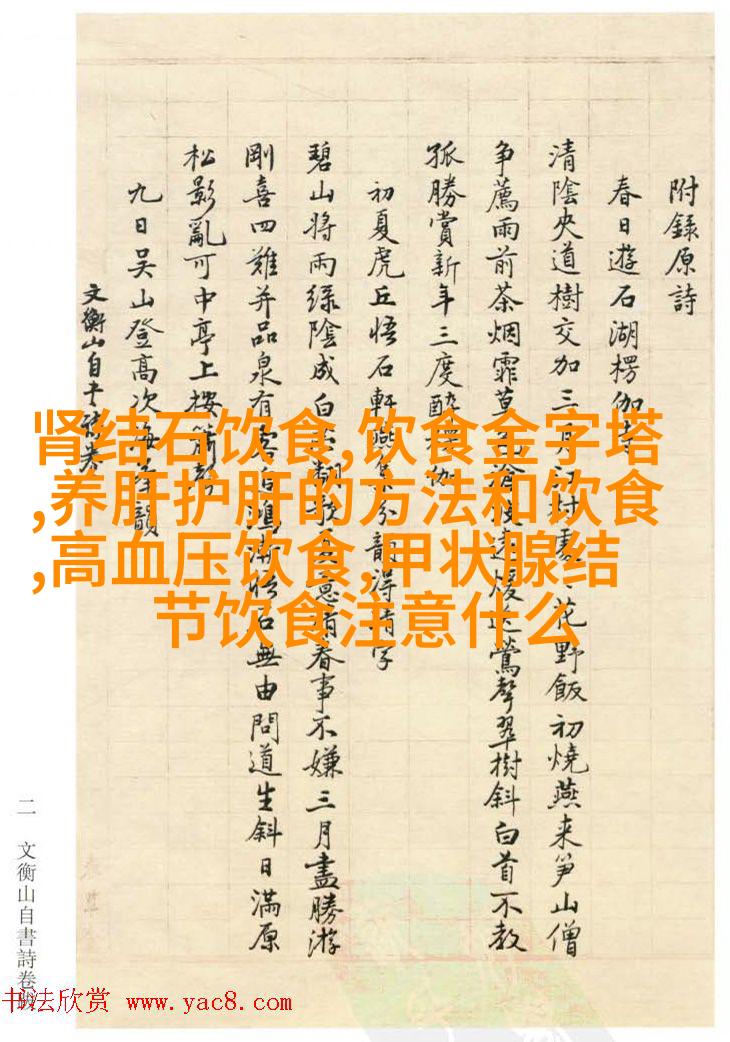 附錄原詩
春日遊石湖楞伽寺
清陰夾道樹交加三月花野飯初燒燕来笋山僧
争薦雨前茶烟霏草煖送鶯聲翠樹斜白首不教
孤勝賞新年三度醉
初夏虎丘悟石軒燕集分韻得情字
碧山將雨綠陰成白春事不嫌三月盡勝游
剛喜四難并品泉有石無由問道生斜日滿原
松影亂可中亭上按
九日吴山登高次韻
文衡山自詩卷
二 文衡山自書詩卷跋
肾结石饮食,饮食金字塔
,养肝护肝的方法和饮食
,高血压饮食,甲状腺结
节饮食注意什么
书法欣赏 www.yac8.com